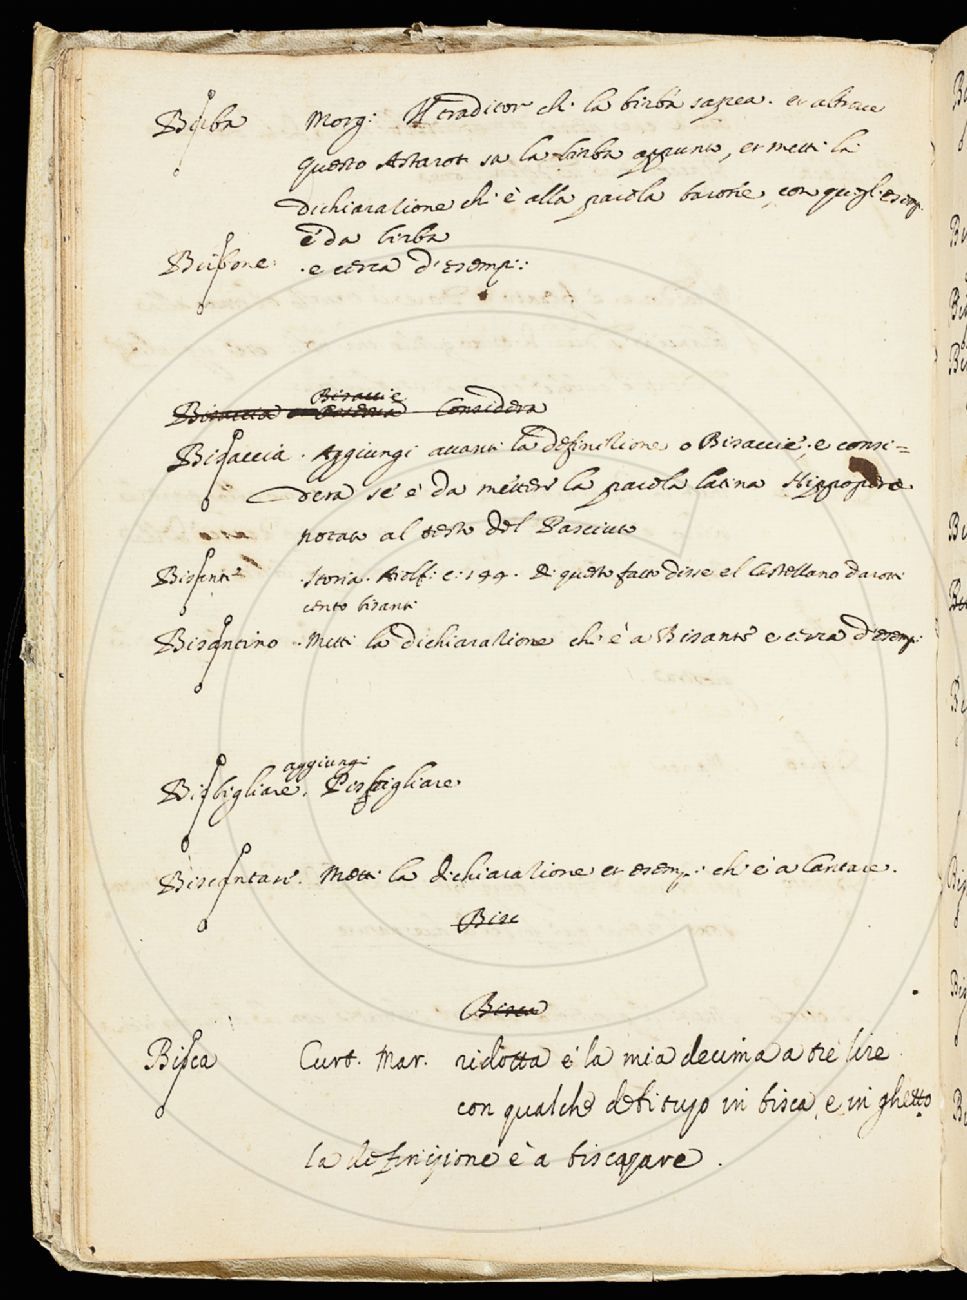 Birba Morg: Il traditor ch. la birba sapea. et altrove
questo Astarot sa la birba appunto, et metti la
dichiaratione ch' è alla parola barone, con quegl'esemp.
è da birba
Birbone . e cerca d'esempi:
Bisaccie
Bisaccia o Considera
Bisaccia . Aggiungi avanti la definitione o Bisaccie, e consi=
dera se è da metterci la parola latina Hippopera
notata al testo del
Bisanti Storia. Aiolf: c: 199. Di questo fatto disse el Castellano darotti
cento bisanti
Bisantino . Metti la dichiaratione ch' è a Bisante e cerca d'esemp:
aggiungi
Bisbigliare. Pispigliare
Biscantare. Metti la dichiaratione et esemp: ch' è a Cantare.
Bisc
Bisca Curt. Mar. ridotta è la mia decima a tre lire
con qualche debituzo in bisca, e in ghetto
la definizione è a biscazare.